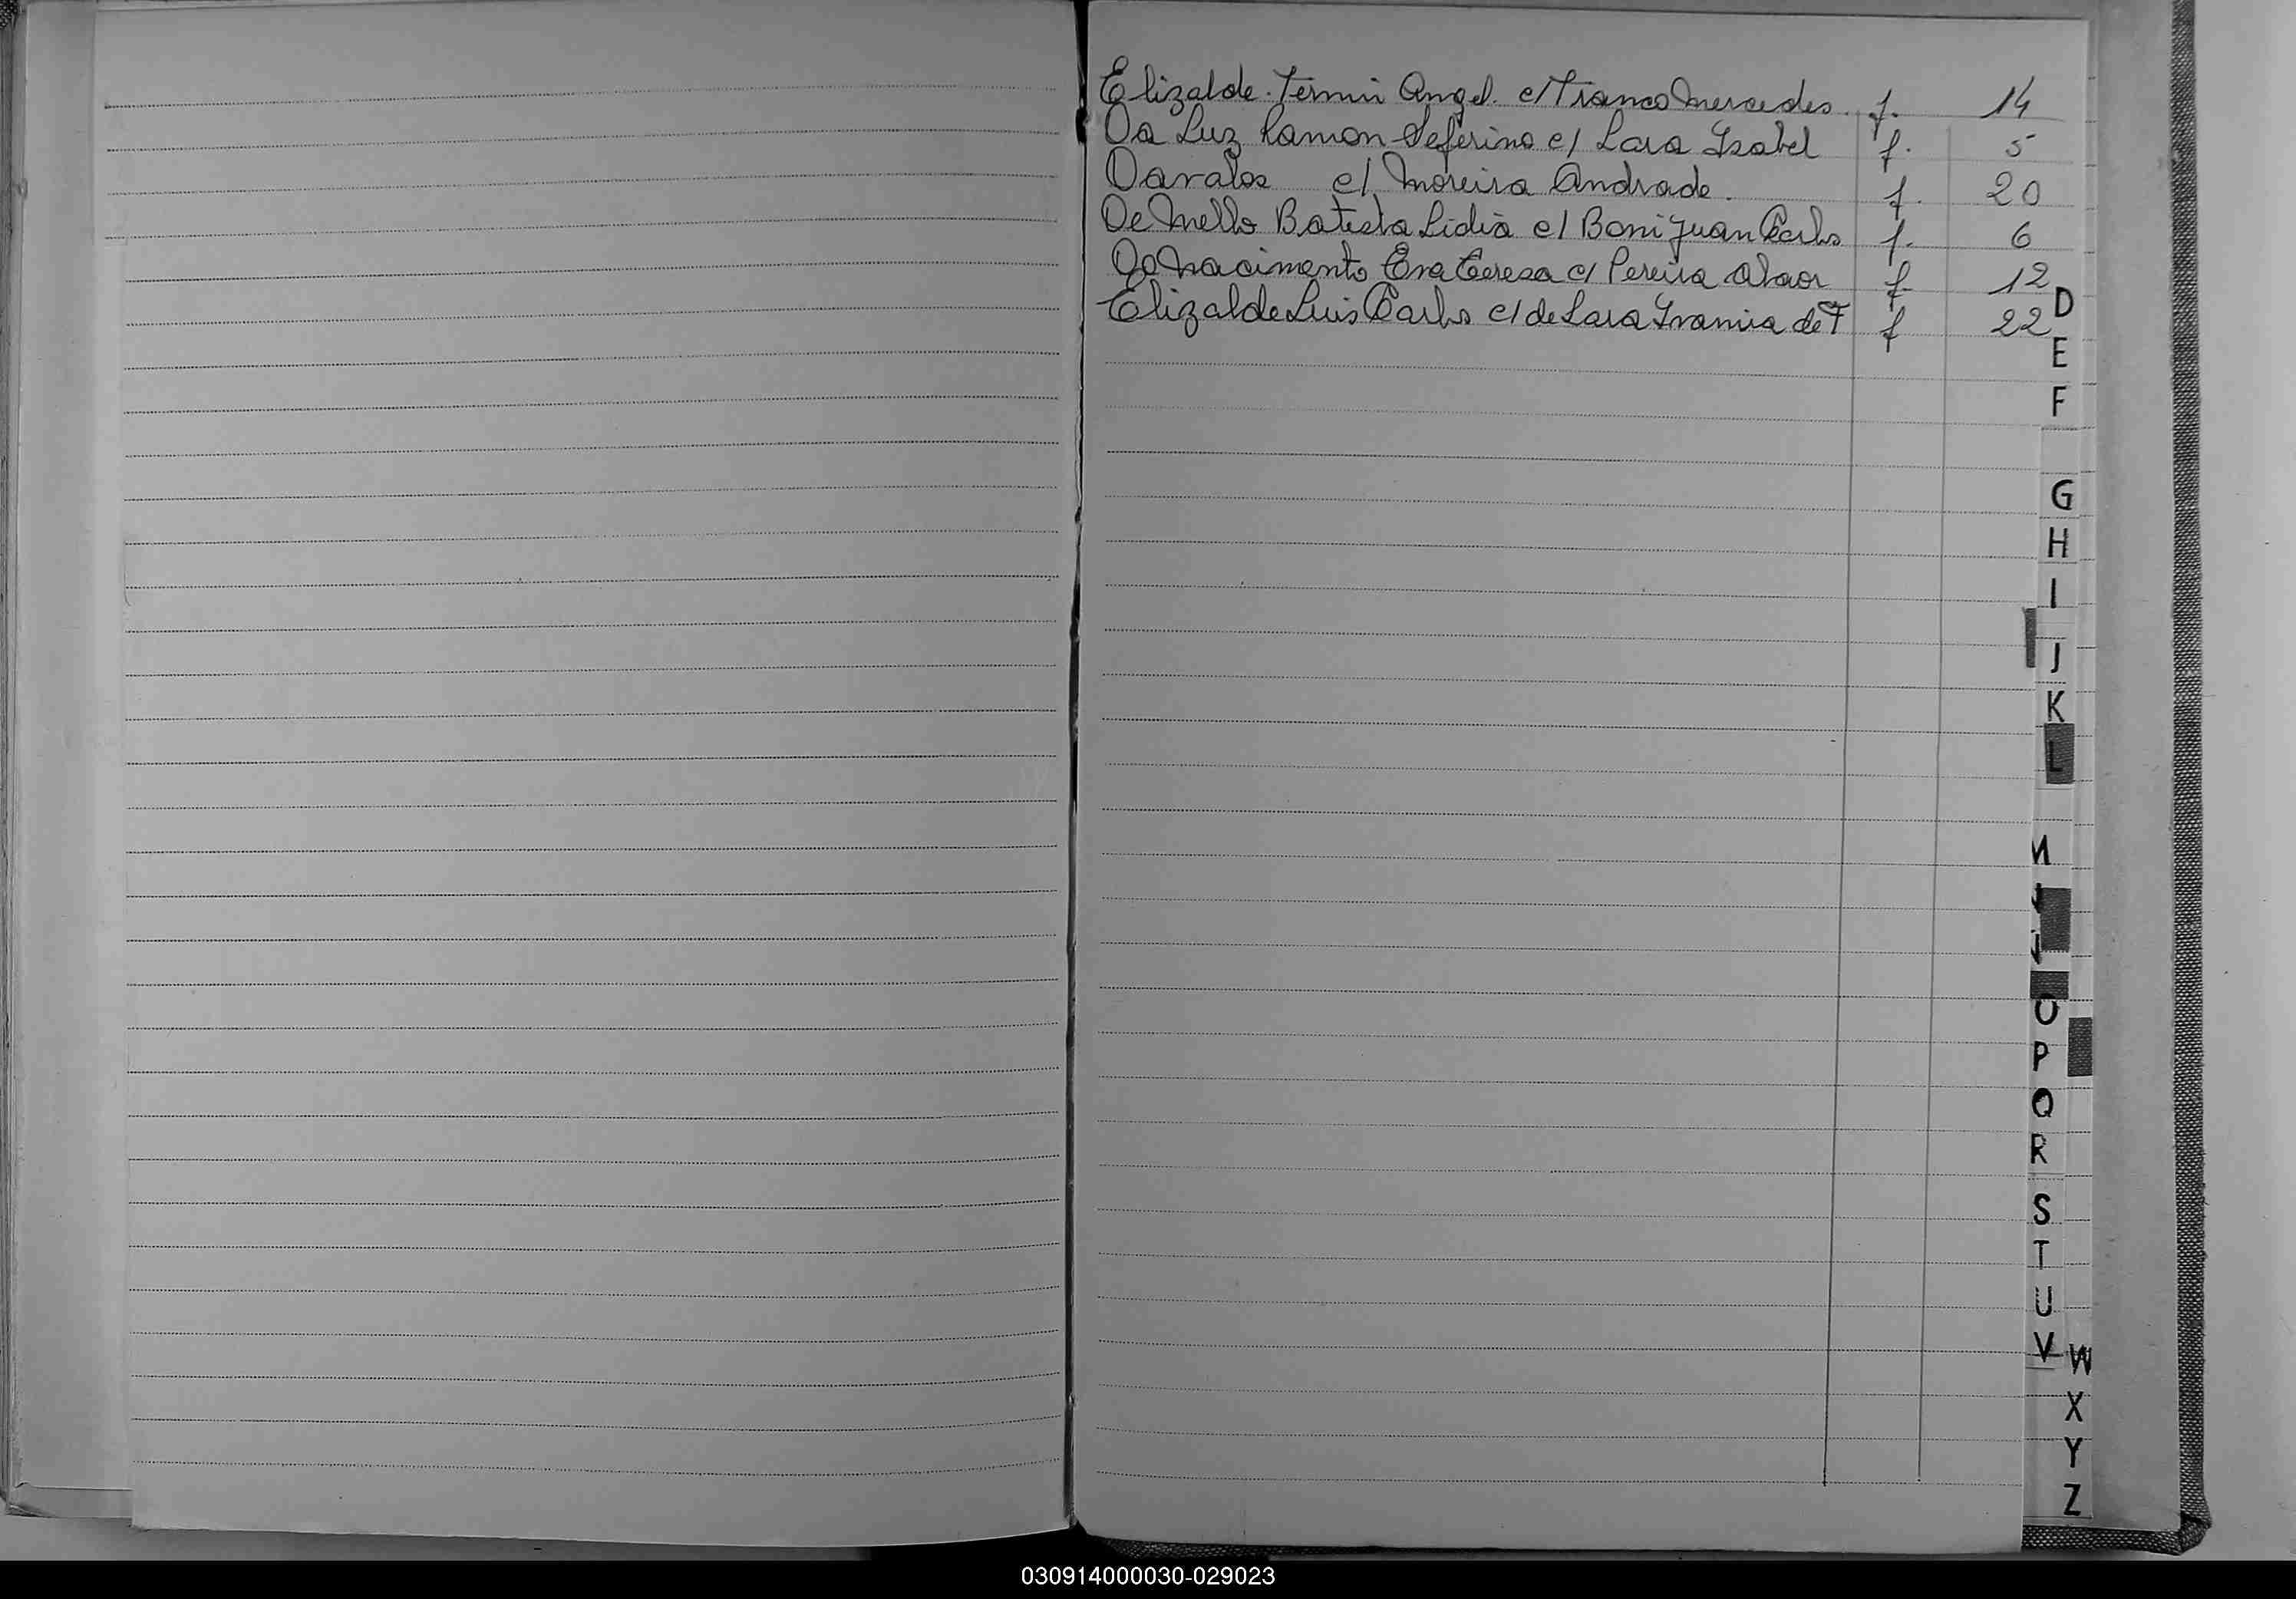 Elizalde Fermin Angel. c/ Franco Mercedes. f. 14
Da Luz Ramon Seferino c/ Lara Isabel f. 5
Davalos c/ Moreira Andrade. f. 20
De Mello Batista Lidia c/ Boni Juan Carlos f. 6
Do Nacimento Eva Teresa c/ Pereira f. 12
Elizalde Luis Carlos c/ de Lara Iramia de F f 22
D
E
F
G
H
I
J
K
L
M
O
P
Q
R
S
T
U
V
W
X
Y
Z
030914000030-029023